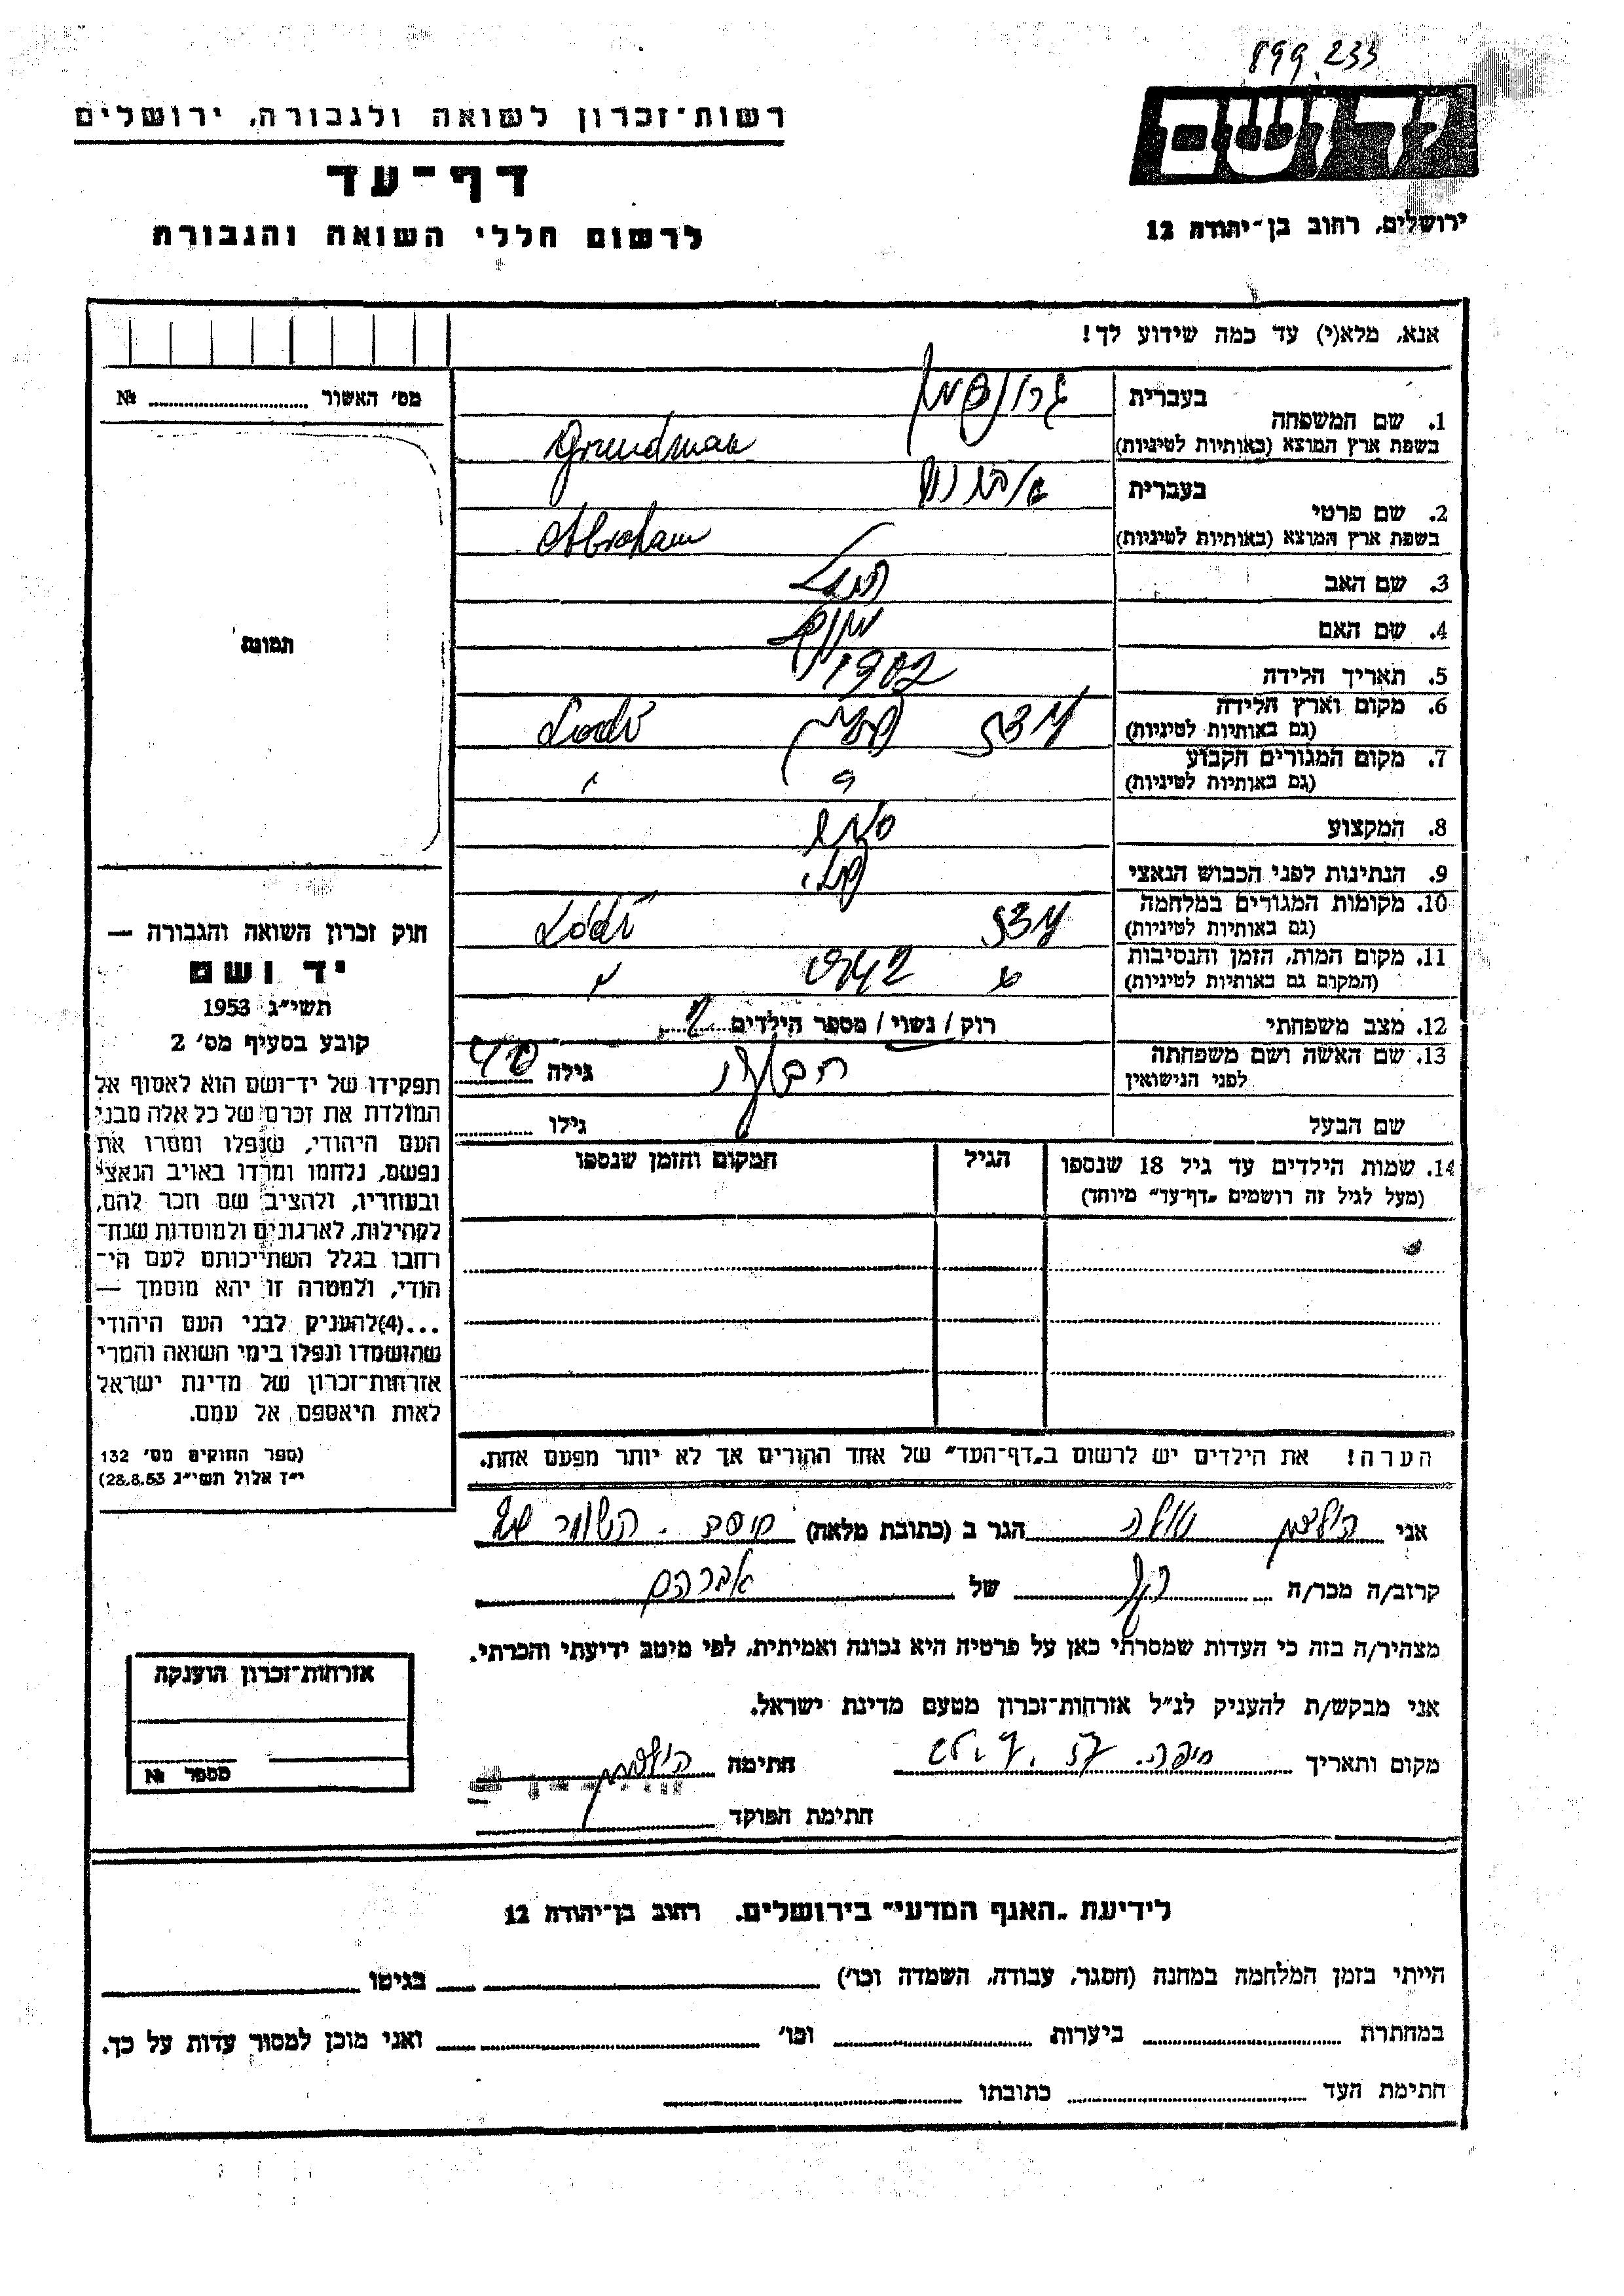 899.233
ידושם
ירושלים, רחוב בן-יהודה 12
רשות-זכרון לשואה ולגבורה, ירושלים
דף-עד
לרשום חללי השואה והגבורה
אנא, מלא(י) עד כמה שידוע לך!
1. שם המשפחה
בעברית
בשפת ארץ המוצא (באותיות לטיניות) Grundman
2. שם פרטי
בעברית
בשפת ארץ המוצא (באותיות לטיניות) Abraham
3. שם האב
4. שם האם
5. תאריך הלידה 1902
6. מקום וארץ הלידה
(גם באותיות לטיניות) לודז פולין Lodź
7. מקום המגורים הקבוע
(גם באותיות לטיניות)
8. המקצוע
9. הנתינות לפני הכבוש הנאצי
10. מקומות המגורים במלחמה
(גם באותיות לטיניות) לודז Lodź
11. מקום המות, הזמן והנסיבות
(המקום גם באותיות לטיניות)
12. מצב משפחתי רוק / נשוי / מספר הילדים 2
13. שם האשה ושם משפחתה
לפני הנישואין גילה
שם הבעל גילו
14. שמות הילדים עד גיל 18 שנספו הגיל המקום והזמן שנספו
(מעל לגיל זה רושמים „דף-עד" מיוחד)
הערה! את הילדים יש לרשום ב„דף-העד" של אחד ההורים אך לא יותר מפעם אחת.
מס' האשור №
תמונה
חוק זכרון השואה והגבורה —
יד ושם
תשי"ג 1953
קובע בסעיף מס' 2
תפקידו של יד-ושם הוא לאסוף אל
המולדת את זכרם של כל אלה מבני
העם היהודי, שנפלו ומסרו את
נפשם, נלחמו ומרדו באויב הנאצי
ובעוזריו, ולהציב שם וזכר להם,
לקהילות, לארגונים ולמוסדות שנח-
רחבו בגלל השתייכותם לעם הי-
הודי, ולמטרה זו יהא מוסמך —
...(4)להעניק לבני העם היהודי
שהושמדו ונפלו בימי השואה והמרי
אזרחות-זכרון של מדינת ישראל
לאות היאספם אל עמם.
(ספר החוקים מס' 132
י"ז אלול תשי"ג 28.8.53)
אני הגר ב (כתובת מלאה)
קרוב/ה מכר/ה של אברהם
מצהיר/ה בזה כי העדות שמסרתי כאן על פרטיה היא נכונה ואמיתית, לפי מיטב ידיעתי והכרתי.
אני מבקש/ת להעניק לנ"ל אזרחות-זכרון מטעם מדינת ישראל.
מקום ותאריך חיפה חתימה
חתימת הפוקד
אזרחות-זכרון הוענקה
מספר №
לידיעת „האגף המדעי" בירושלים, רחוב בן-יהודה 12
הייתי בזמן המלחמה במחנה (הסגר, עבודה, השמדה וכו') בגיטו
במחתרת ביערות וכו' ואני מוכן למסור עדות על כך.
חתימת העד כתובתו